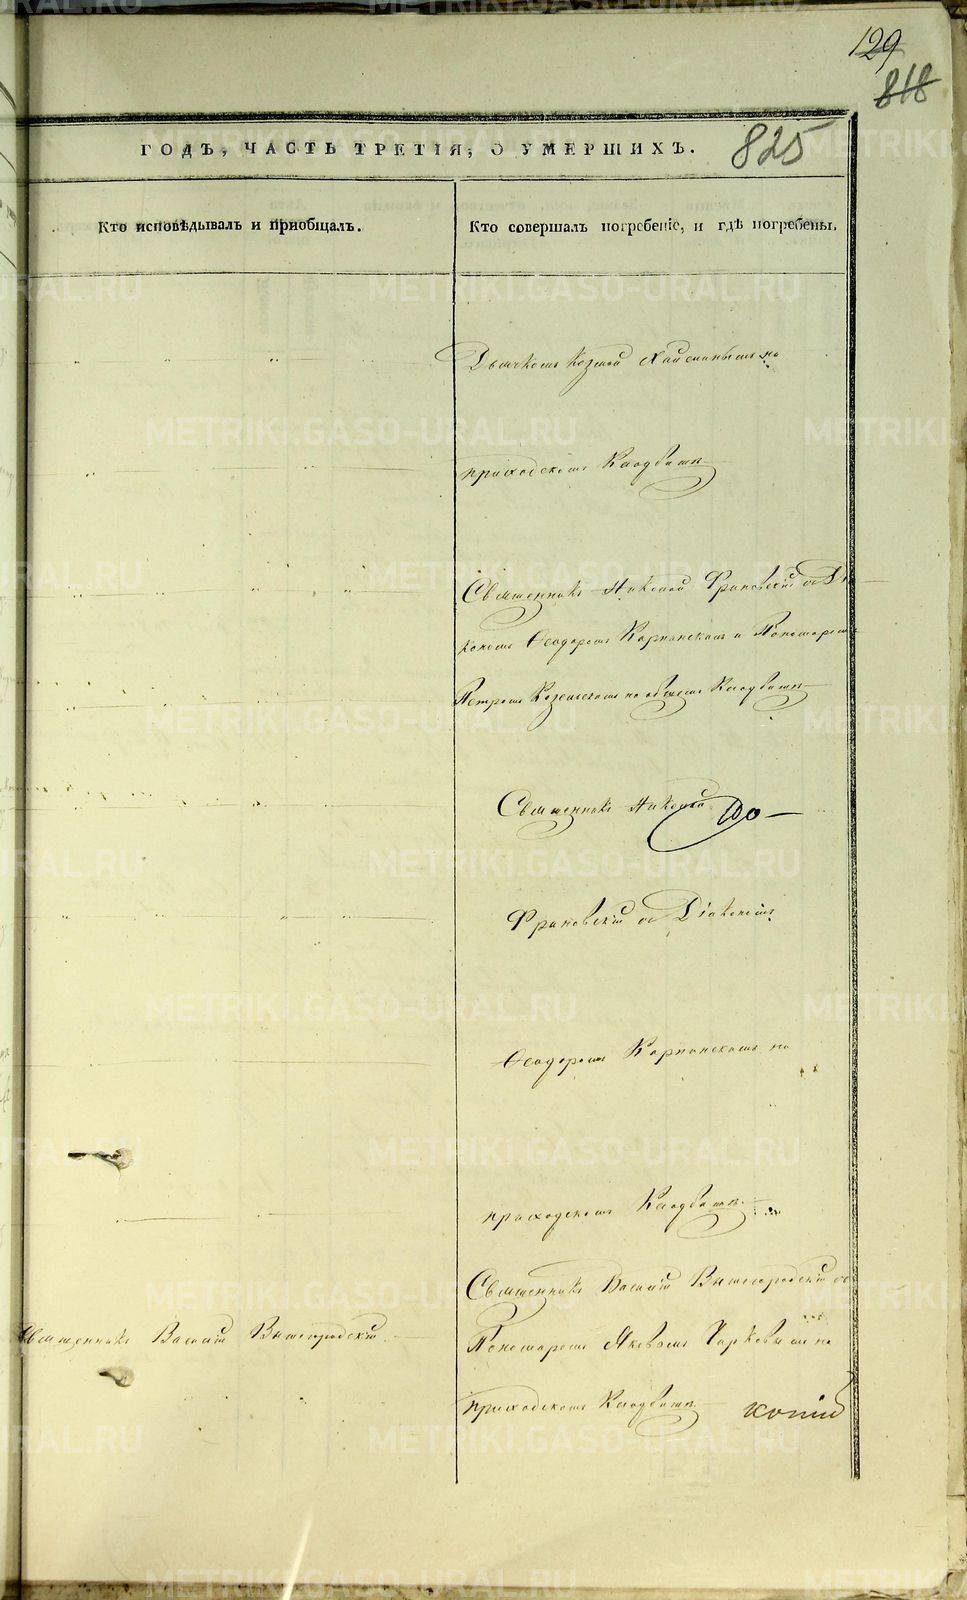 129
818
825
ГОДѢ, ЧАСТЬ ТРЕТІЯ, О УМЕРШИХЪ.
Кто исповѣдывалъ и пріобщалъ.
Кто совершалъ погребеніе, и гдѣ погребены.
Дьячкомъ Козмой на
приходскомъ Кладбищѣ
Священникъ Николай Франовскій съ Діа
кономъ Ѳеодоромъ Карпинскимъ и Пономаремъ
Петромъ на общемъ Кладбищѣ
Священникъ Николай
Франовскій съ Діакономъ
Ѳеодоромъ Карпинскимъ на
приходскомъ Кладбищѣ
Священникъ Василій Вышегородскій съ
Священникъ Василій Вышегородскій
Пономаремъ Яковомъ на
приходскомъ Кладбищѣ копію
METRIKI.GASO-URAL.RU